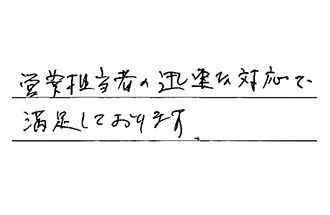 営業担当者の迅速な対応で
満足しております。